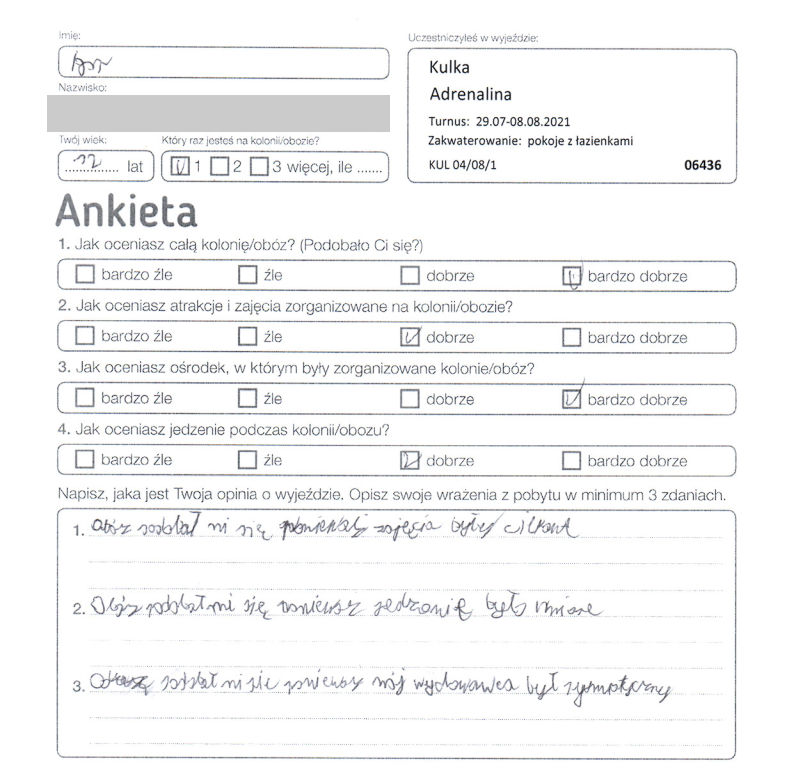 Imię:
Uczestniczyłeś w wyjeździe:
Igor
Kulka
Adrenalina
Nazwisko:
Turnus: 29.07-08.08.2021
Zakwaterowanie: pokoje z łazienkami
KUL 04/08/1 06436
Twój wiek: Który raz jesteś na kolonii/obozie?
12 lat 1 2 3 więcej, ile .......
Ankieta
1. Jak oceniasz całą kolonię/obóz? (Podobało Ci się?)
bardzo źle źle dobrze bardzo dobrze
2. Jak oceniasz atrakcje i zajęcia zorganizowane na kolonii/obozie?
bardzo źle źle dobrze bardzo dobrze
3. Jak oceniasz ośrodek, w którym były zorganizowane kolonie/obóz?
bardzo źle źle dobrze bardzo dobrze
4. Jak oceniasz jedzenie podczas kolonii/obozu?
bardzo źle źle dobrze bardzo dobrze
Napisz, jaka jest Twoja opinia o wyjeździe. Opisz swoje wrażenia z pobytu w minimum 3 zdaniach.
1. Obóz podobał mi się ponieważ zajęcia były
2. Obóz podobał mi się ponieważ jedzenie było
3. podobał mi się ponieważ mój wychowawca był